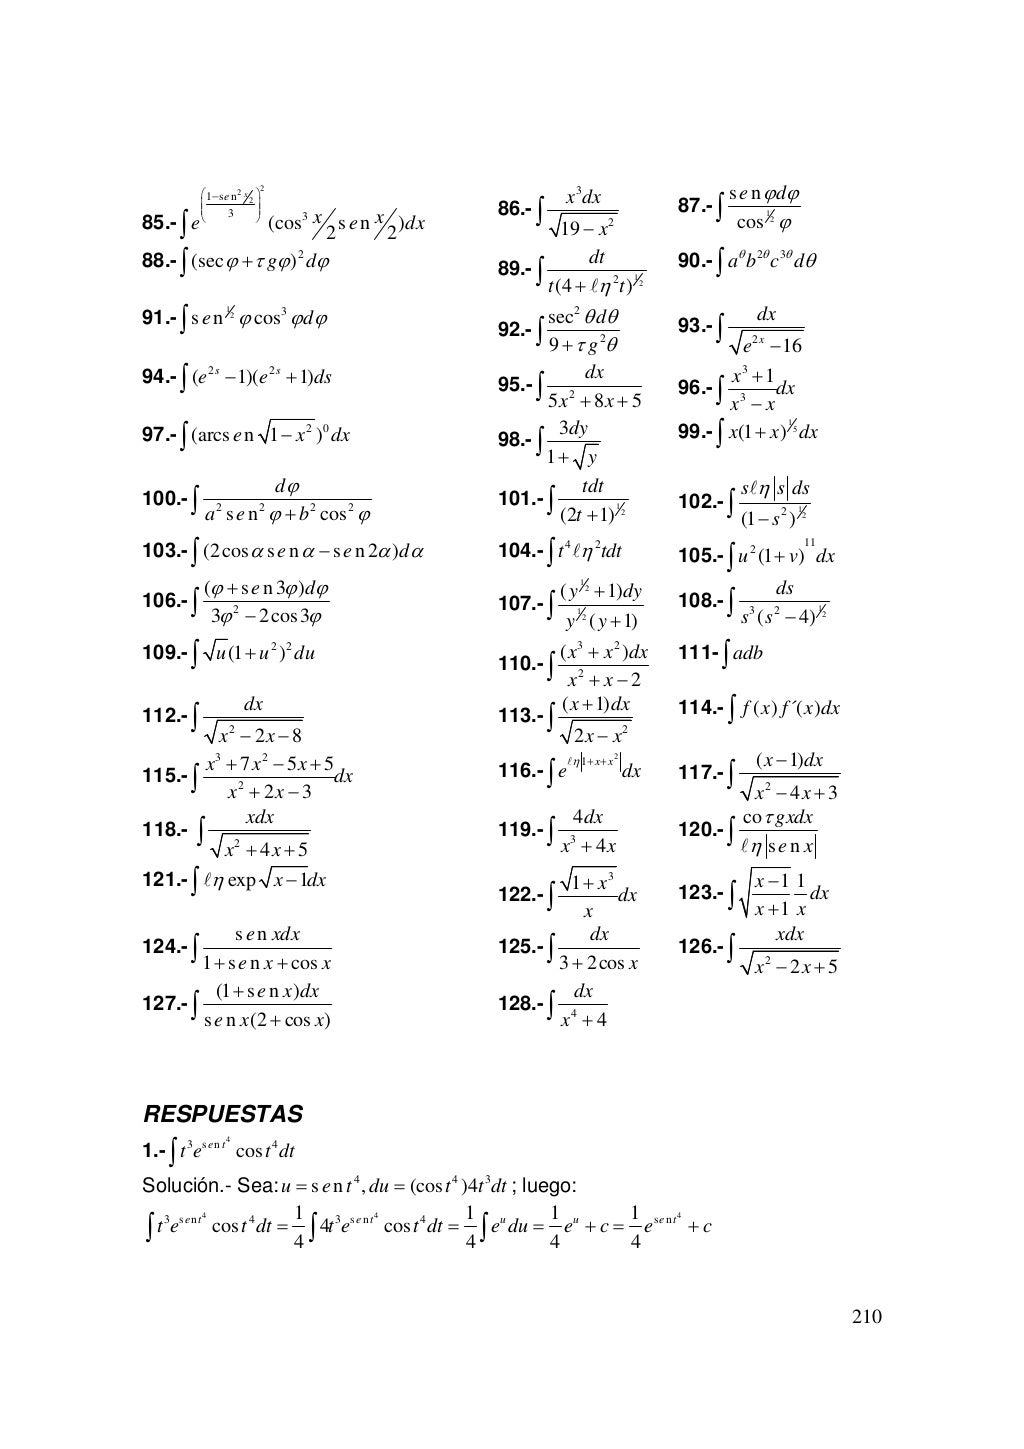 85.- ∫ e^{((1−sen² x/2)/3)²} (cos³ x/2 sen x/2)dx    86.- ∫ x³dx/√(19−x²)    87.- ∫ senφdφ/cos^{1/2}φ
88.- ∫ (secφ+τgφ)²dφ    89.- ∫ dt/(t(4+ℓη²t)^{1/2})    90.- ∫ a^θ b^{2θ} c^{3θ} dθ
91.- ∫ sen^{1/2}φcos³φdφ    92.- ∫ sec²θdθ/(9+τg²θ)    93.- ∫ dx/√(e^{2x}−16)
94.- ∫ (e^{2s}−1)(e^{2s}+1)ds    95.- ∫ dx/(5x²+8x+5)    96.- ∫ (x³+1)/(x³−x) dx
97.- ∫ (arcsen√(1−x²))⁰dx    98.- ∫ 3dy/(1+√y)    99.- ∫ x(1+x)^{1/5}dx
100.- ∫ dφ/(a²sen²φ+b²cos²φ)    101.- ∫ tdt/(2t+1)^{1/2}    102.- ∫ sℓη|s|ds/(1−s²)^{1/2}
103.- ∫ (2cosαsenα−sen2α)dα    104.- ∫ t⁴ℓη²tdt    105.- ∫ u²(1+v)¹¹dx
106.- ∫ (φ+sen3φ)dφ/(3φ²−2cos3φ)    107.- ∫ (y^{1/2}+1)dy/(y^{1/2}(y+1))    108.- ∫ ds/(s³(s²−4)^{1/2})
109.- ∫ √u(1+u²)²du    110.- ∫ (x³+x²)dx/(x²+x−2)    111- ∫ adb
112.- ∫ dx/√(x²−2x−8)    113.- ∫ (x+1)dx/√(2x−x²)    114.- ∫ f(x)f´(x)dx
115.- ∫ (x³+7x²−5x+5)/(x²+2x−3) dx    116.- ∫ e^{ℓη|1+x+x²|}dx    117.- ∫ (x−1)dx/√(x²−4x+3)
118.- ∫ xdx/√(x²+4x+5)    119.- ∫ 4dx/(x³+4x)    120.- ∫ coτgxdx/ℓη|senx|
121.- ∫ ℓη exp√(x−1)dx    122.- ∫ √(1+x³)/x dx    123.- ∫ √((x−1)/(x+1)) 1/x dx
124.- ∫ senxdx/(1+senx+cosx)    125.- ∫ dx/(3+2cosx)    126.- ∫ xdx/√(x²−2x+5)
127.- ∫ (1+senx)dx/(senx(2+cosx))    128.- ∫ dx/(x⁴+4)
RESPUESTAS
1.- ∫ t³e^{sent⁴} cost⁴dt
Solución.- Sea: u = sent⁴, du = (cost⁴)4t³dt ; luego:
∫ t³e^{sent⁴} cost⁴dt = 1/4 ∫ 4t³e^{sent⁴} cost⁴dt = 1/4 ∫ e^u du = 1/4 e^u + c = 1/4 e^{sent⁴} + c
210